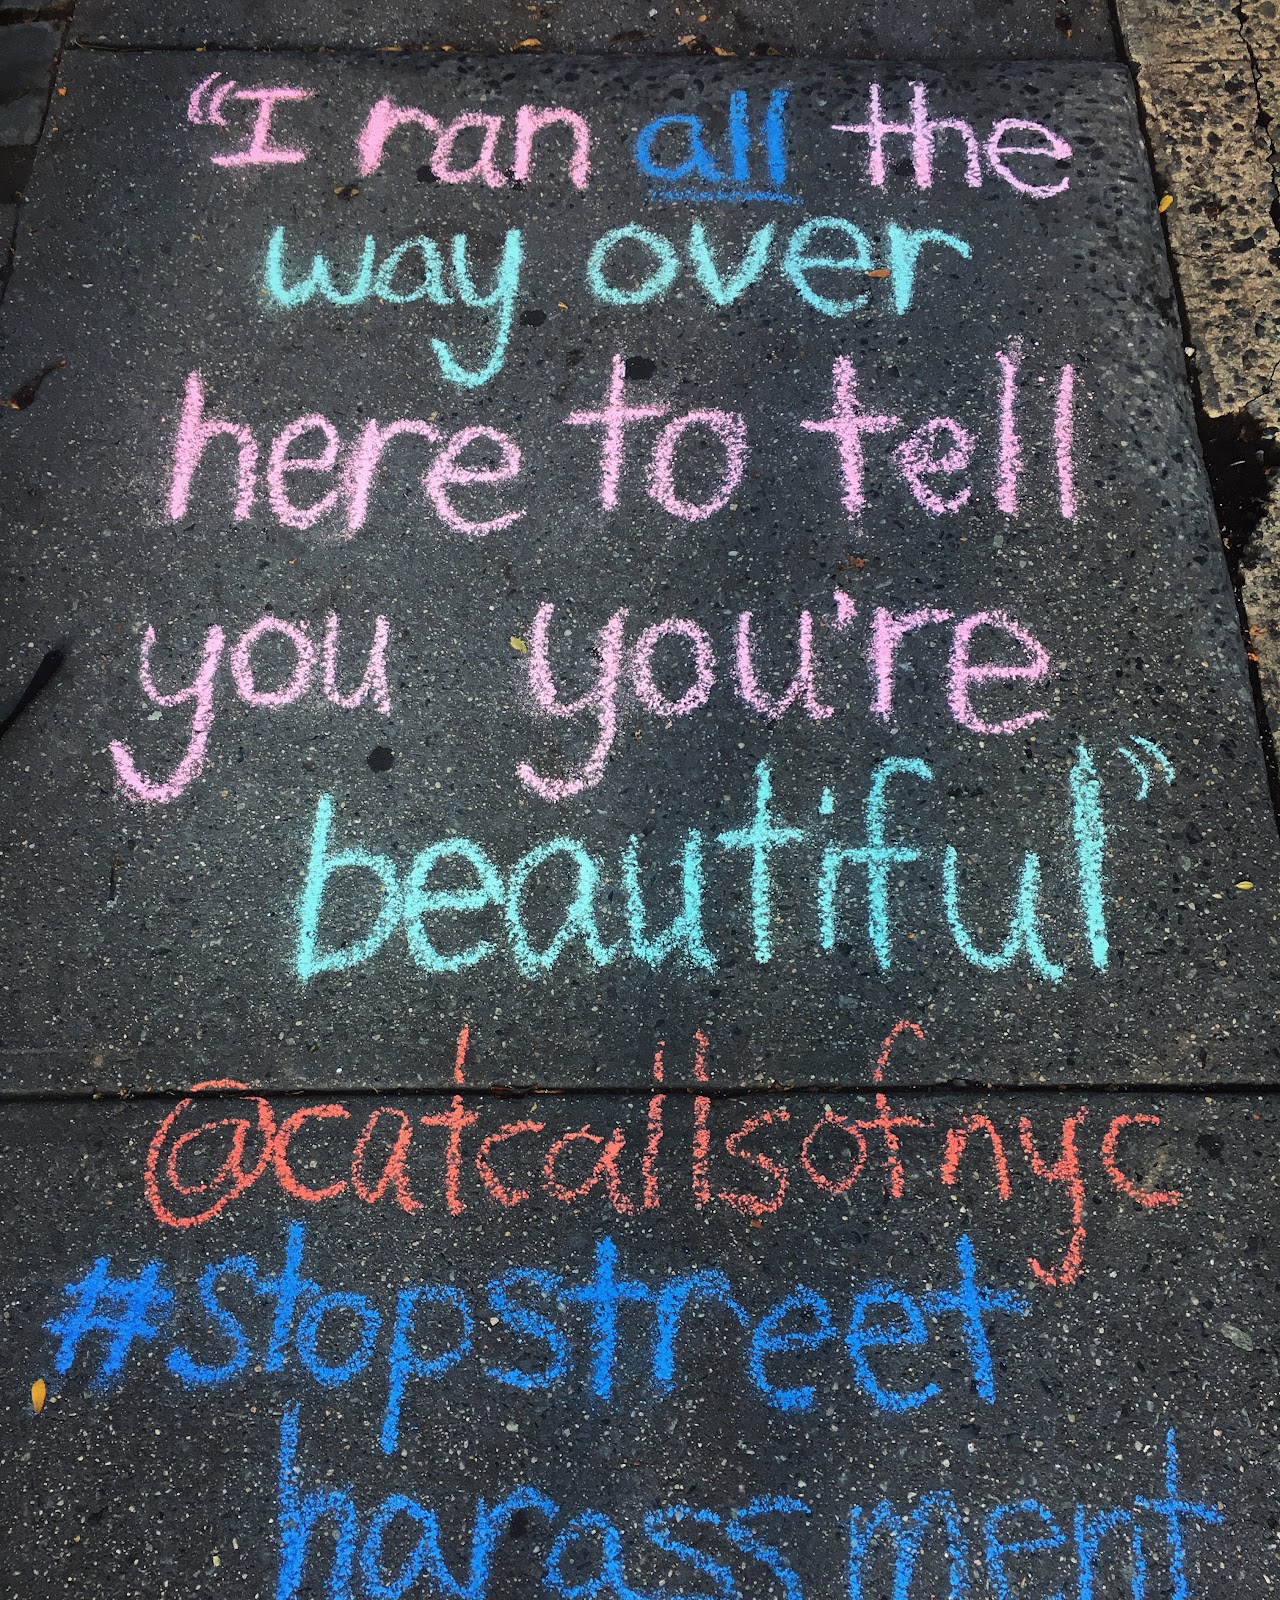 “I ran all the
way over
here to tell
you you're
beautiful”
@catcallsofnyc
#stopstreet
harassment